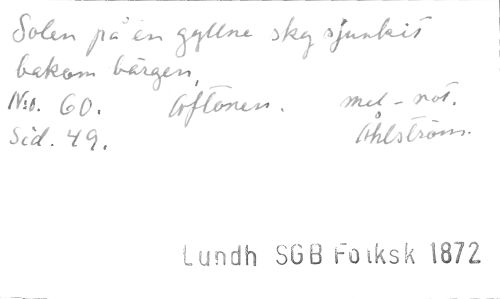 Solen på en gyllne sky sjunkit
bakom bärgen,
No. 60. Aftonen. mel-not.
Sid. 49. Åhlström.
Lundh SGB Folksk 1872